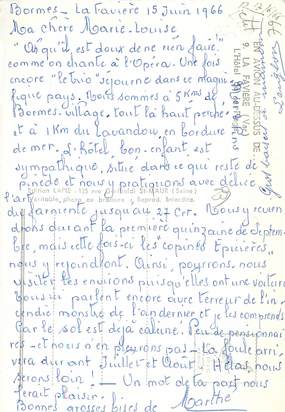 Bormes - La Favière 15 Juin 1966
Ma chère Marie-Louise,
"Ah qu'il est doux de ne rien faire"
comme on chante à l'Opéra. Une fois
encore "le trio" séjourne dans ce magni-
fique pays. Nous sommes à 5 Kms de
Bormes-village tout là haut perché
et à 1 Km du Lavandou en bordure
de mer. L'hôtel bon-enfant est
sympathique, situé dans ce qui reste de
pinède et nous y pratiquons avec délice
l'art
du farniente jusqu'au 27 Ct. Nous y revien
drons durant la première quinzaine de septem-
bre, mais cette fois-ci les copines Epicières
nous y rejoindront. Ainsi, pourrons-nous
visiter les environs puisqu'elles ont une voiture
Tous ici parlent encore avec terreur de l'in-
cendie monstre de l'an dernier et je les comprends
Car le sol est déjà calciné. Peu de pensionnai
res - et nous n'en pleurons pas - La foule arri-
vera durant Juillet et Août. Hélas, nous
serons loin! - Un mot de ta part nous
ferait plaisir.
Bonnes grosses bises de Marthe
9. LA FAVIERE (Var)